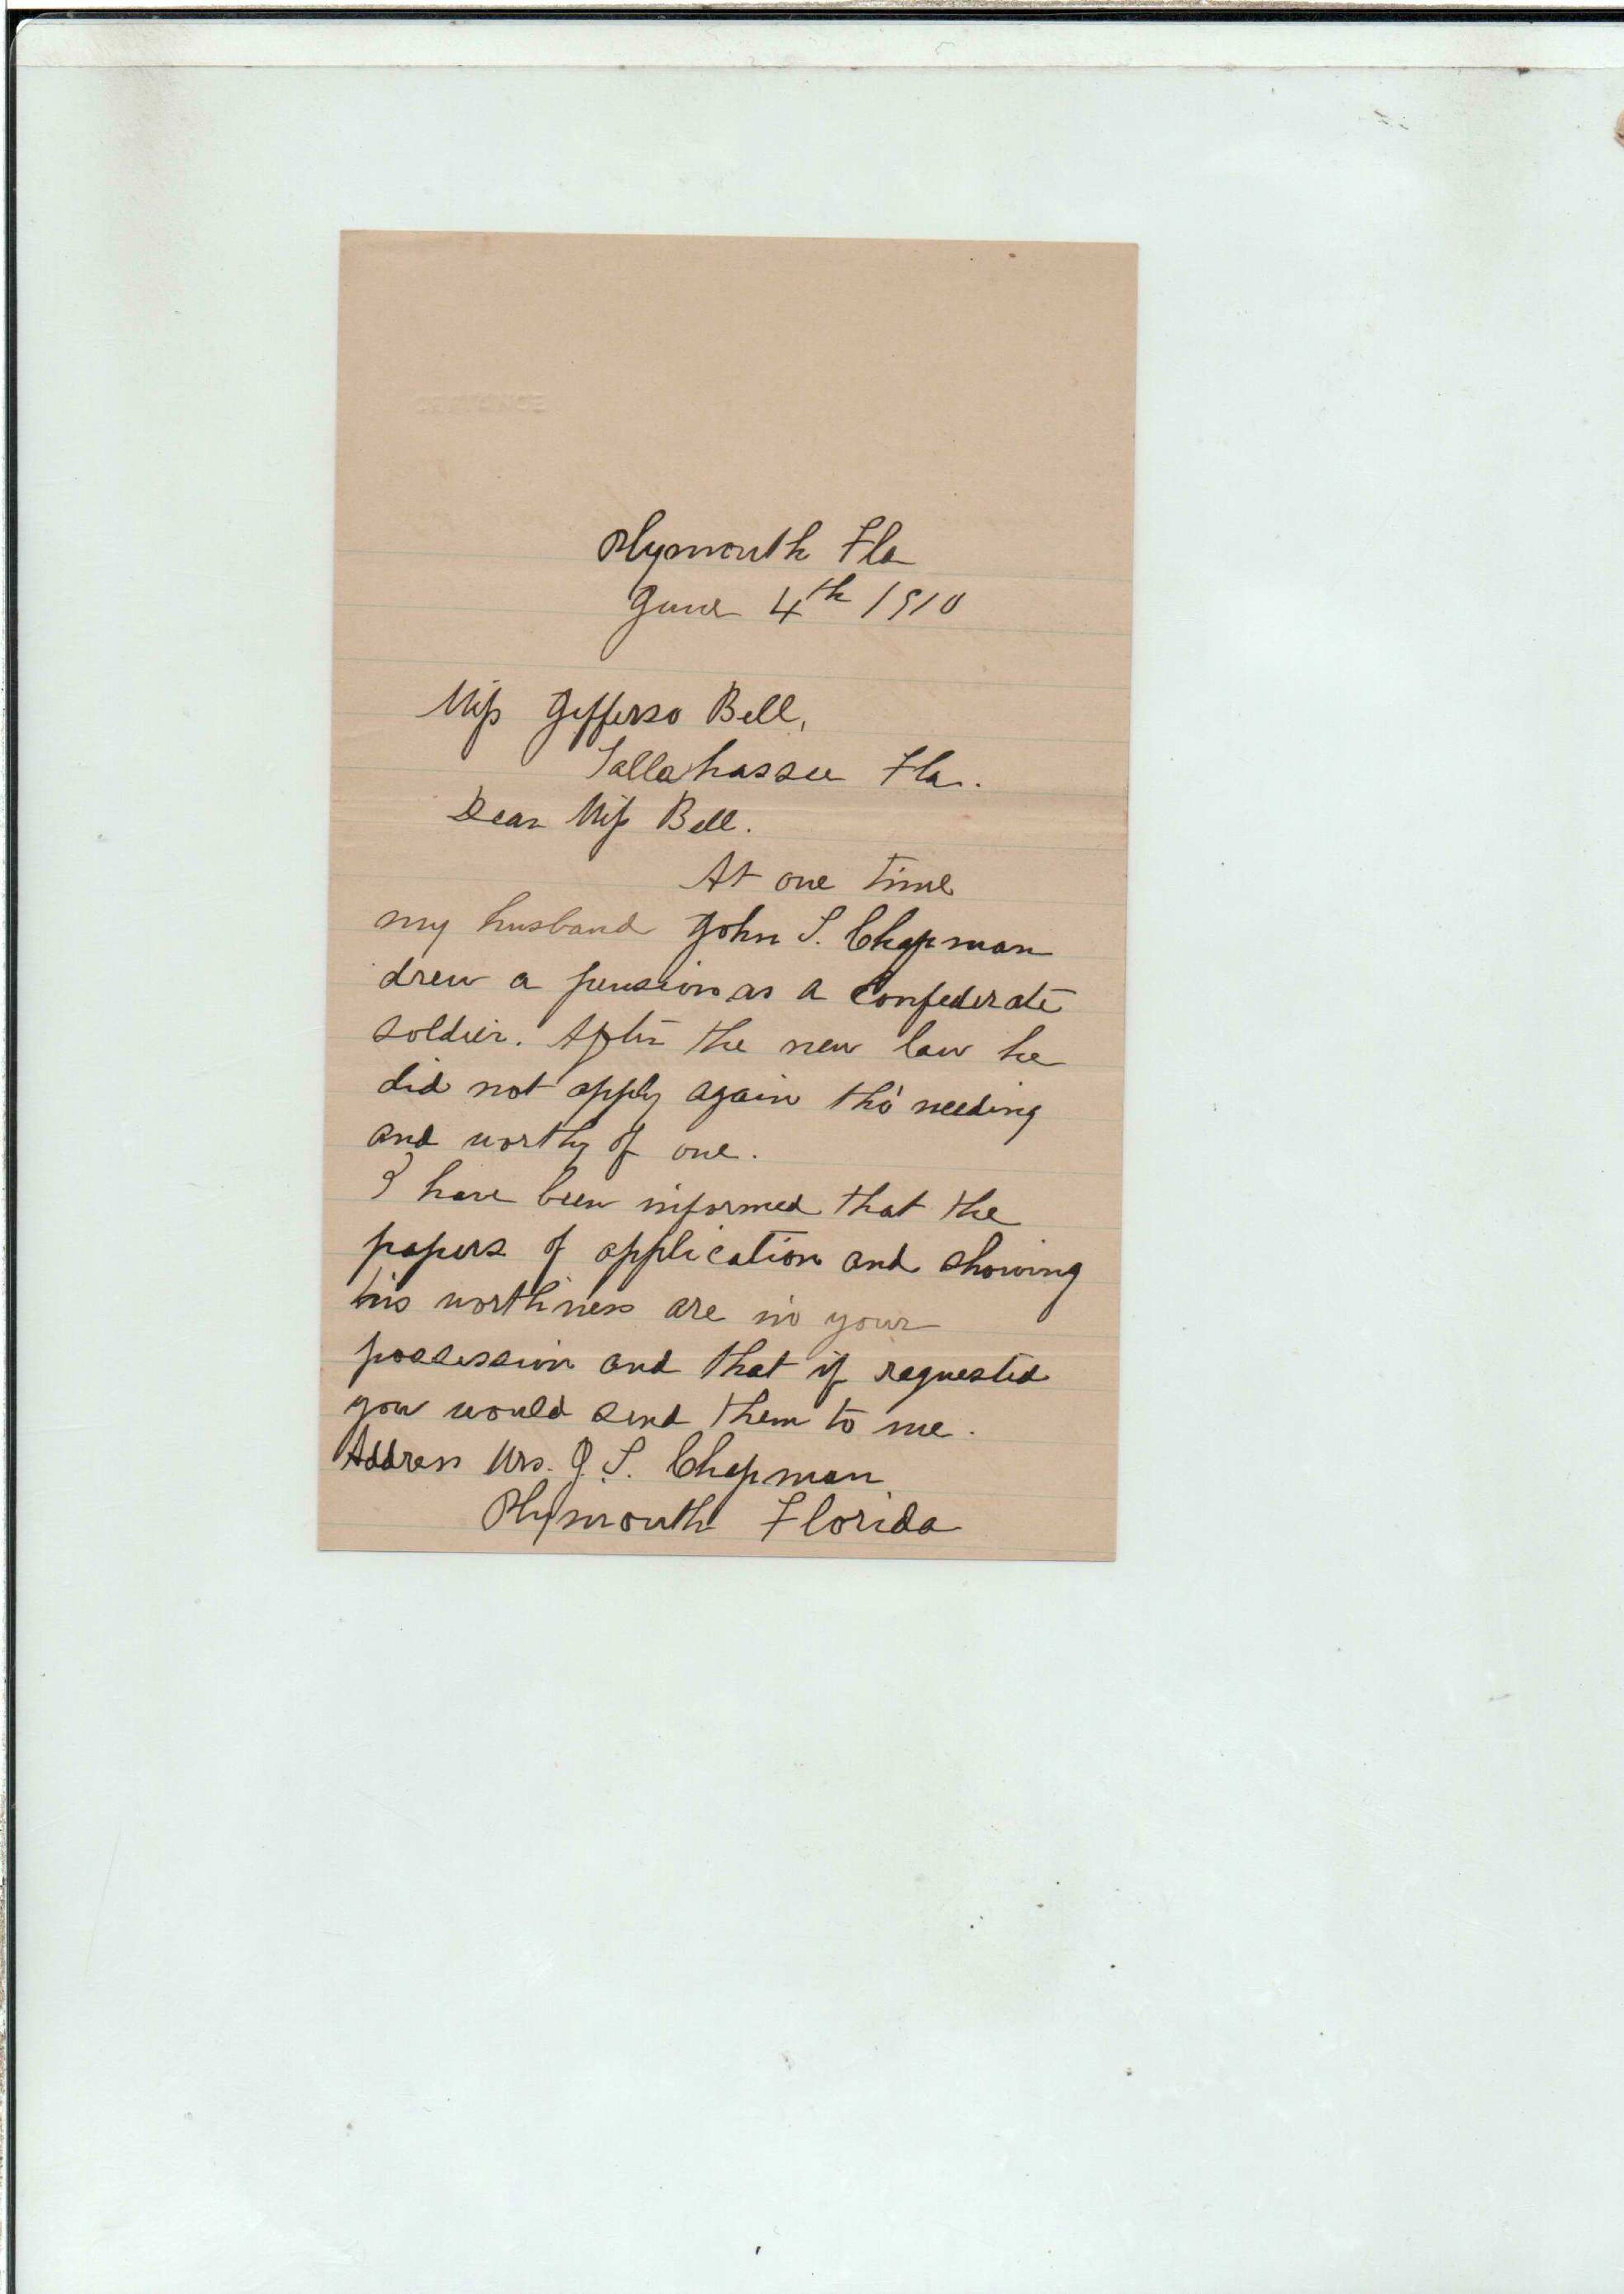 Plymouth Fla
June 4th 1910
Miss Jefferso Bell,
Tallahassee Fla.
Dear Miss Bell.
At one time
my husband John S. Chapman
drew a pension as a Confederate
soldier. After the new law he
did not apply again tho' needing
and worthy of one.
I have been informed that the
papers of application and showing
his worthiness are in your
possession and that if requested
you would send them to me.
Address Mrs. J. S. Chapman
Plymouth Florida